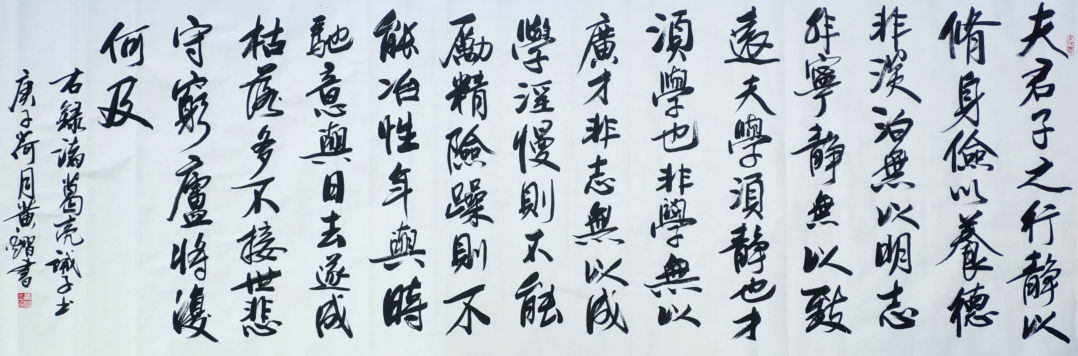 夫君子之行静以
脩身儉以養德
非淡泊無以明志
非寧静無以致
遠夫學須静也才
須學也非學無以
廣才非志無以成
學淫慢則不能
勵精險躁則不
能冶性年與時
馳意與日去遂成
枯落多不接世悲
守窮廬將復
何及
右録諸葛亮誡子書
庚子荷月黄書